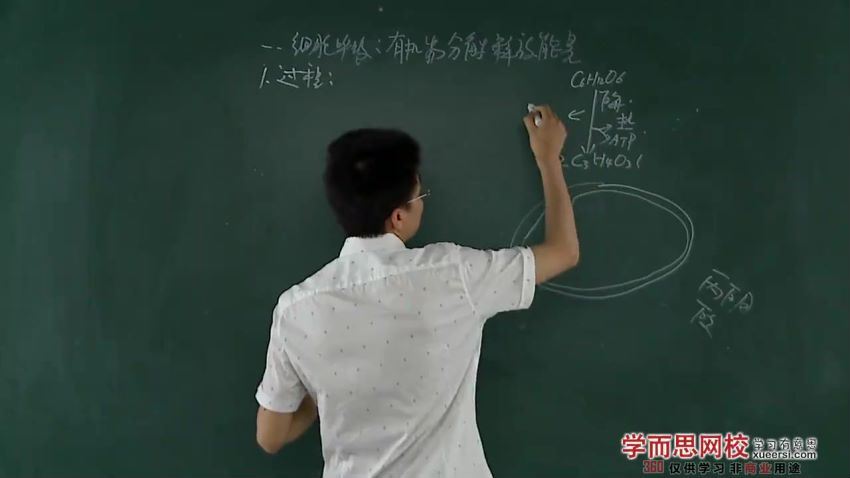 一、细胞呼吸：有机物分解释放能量
1. 过程：
C6H12O6
酶
热
ATP
2C3H4O3(
丙酮
酸
学而思网校
学习有意思
xueersi.com
360 仅供学习 非商业用途